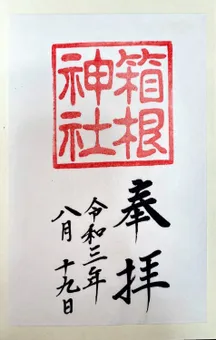 箱根
神社
奉拝
令和三年
八月十九日